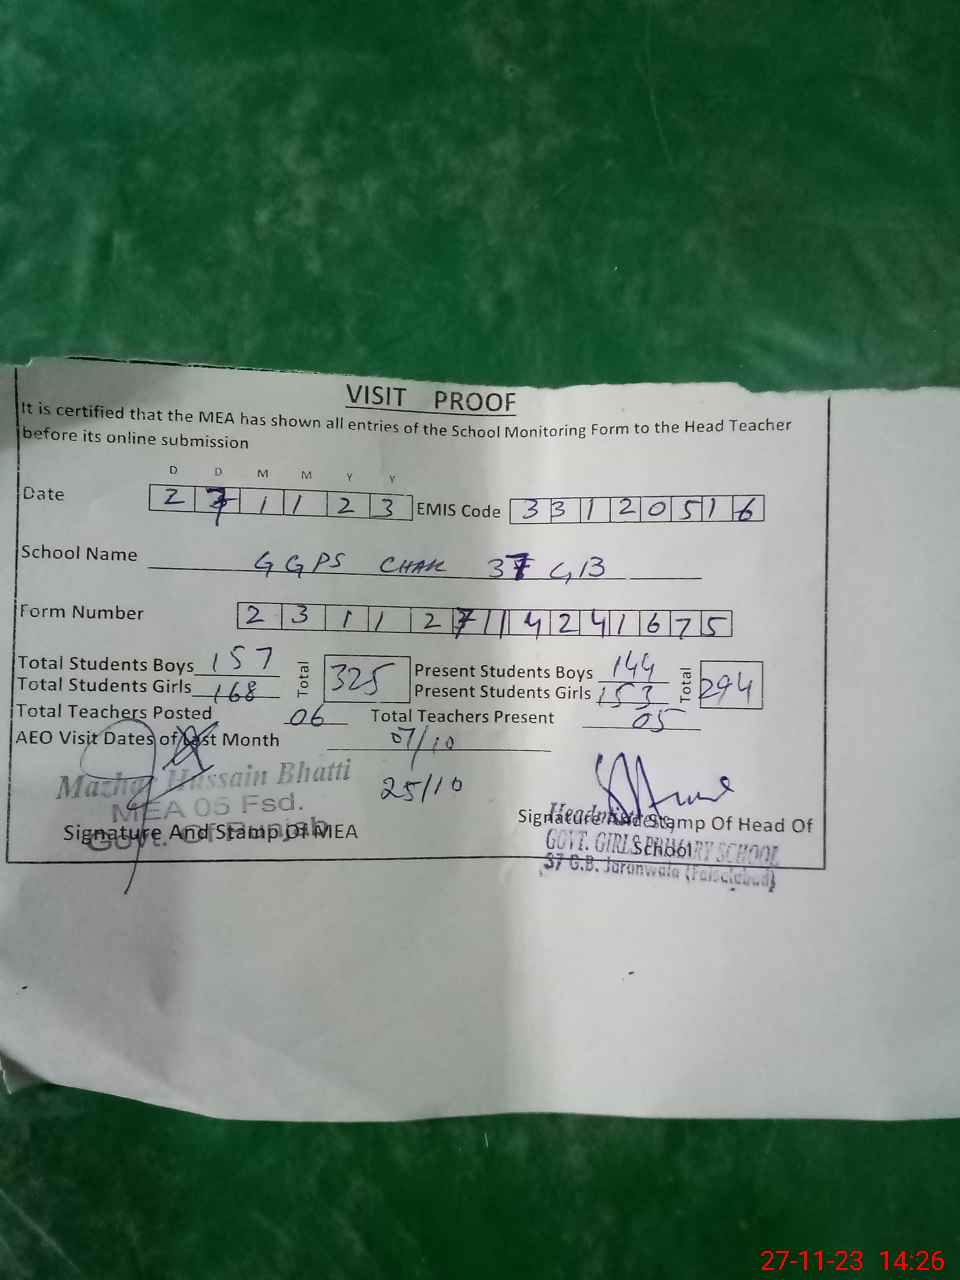 VISIT PROOF
It is certified that the MEA has shown all entries of the School Monitoring Form to the Head Teacher
before its online submission
D D M M Y Y
Date 2 7 1 1 2 3 EMIS Code 3 3 1 2 0 5 1 6
School Name GGPS CHAK 37 GB
Form Number 2 3 1 1 2 7 1 4 2 4 1 6 7 5
Total Students Boys 157 Total 325 Present Students Boys 144 Total 294
Total Students Girls 168 Present Students Girls 153
Total Teachers Posted 06 Total Teachers Present 05
AEO Visit Dates of Last Month 07/10
25/10
Mazhar Hussain Bhatti
MEA 05 Fsd.
Govt. Of Punjab
Signature And Stamp Of MEA
Signature And Stamp Of Head Of
School
Headmistress
GOVT. GIRLS PRIMARY SCHOOL
37 G.B. Jaranwala (Faisalabad)
27-11-23 14:26